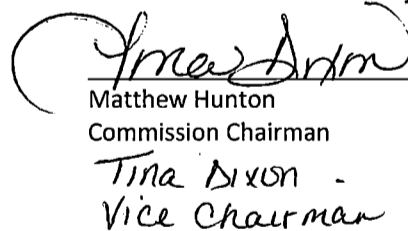 Tina Dixon
Matthew Hunton
Commission Chairman
Tina Dixon -
Vice Chairman